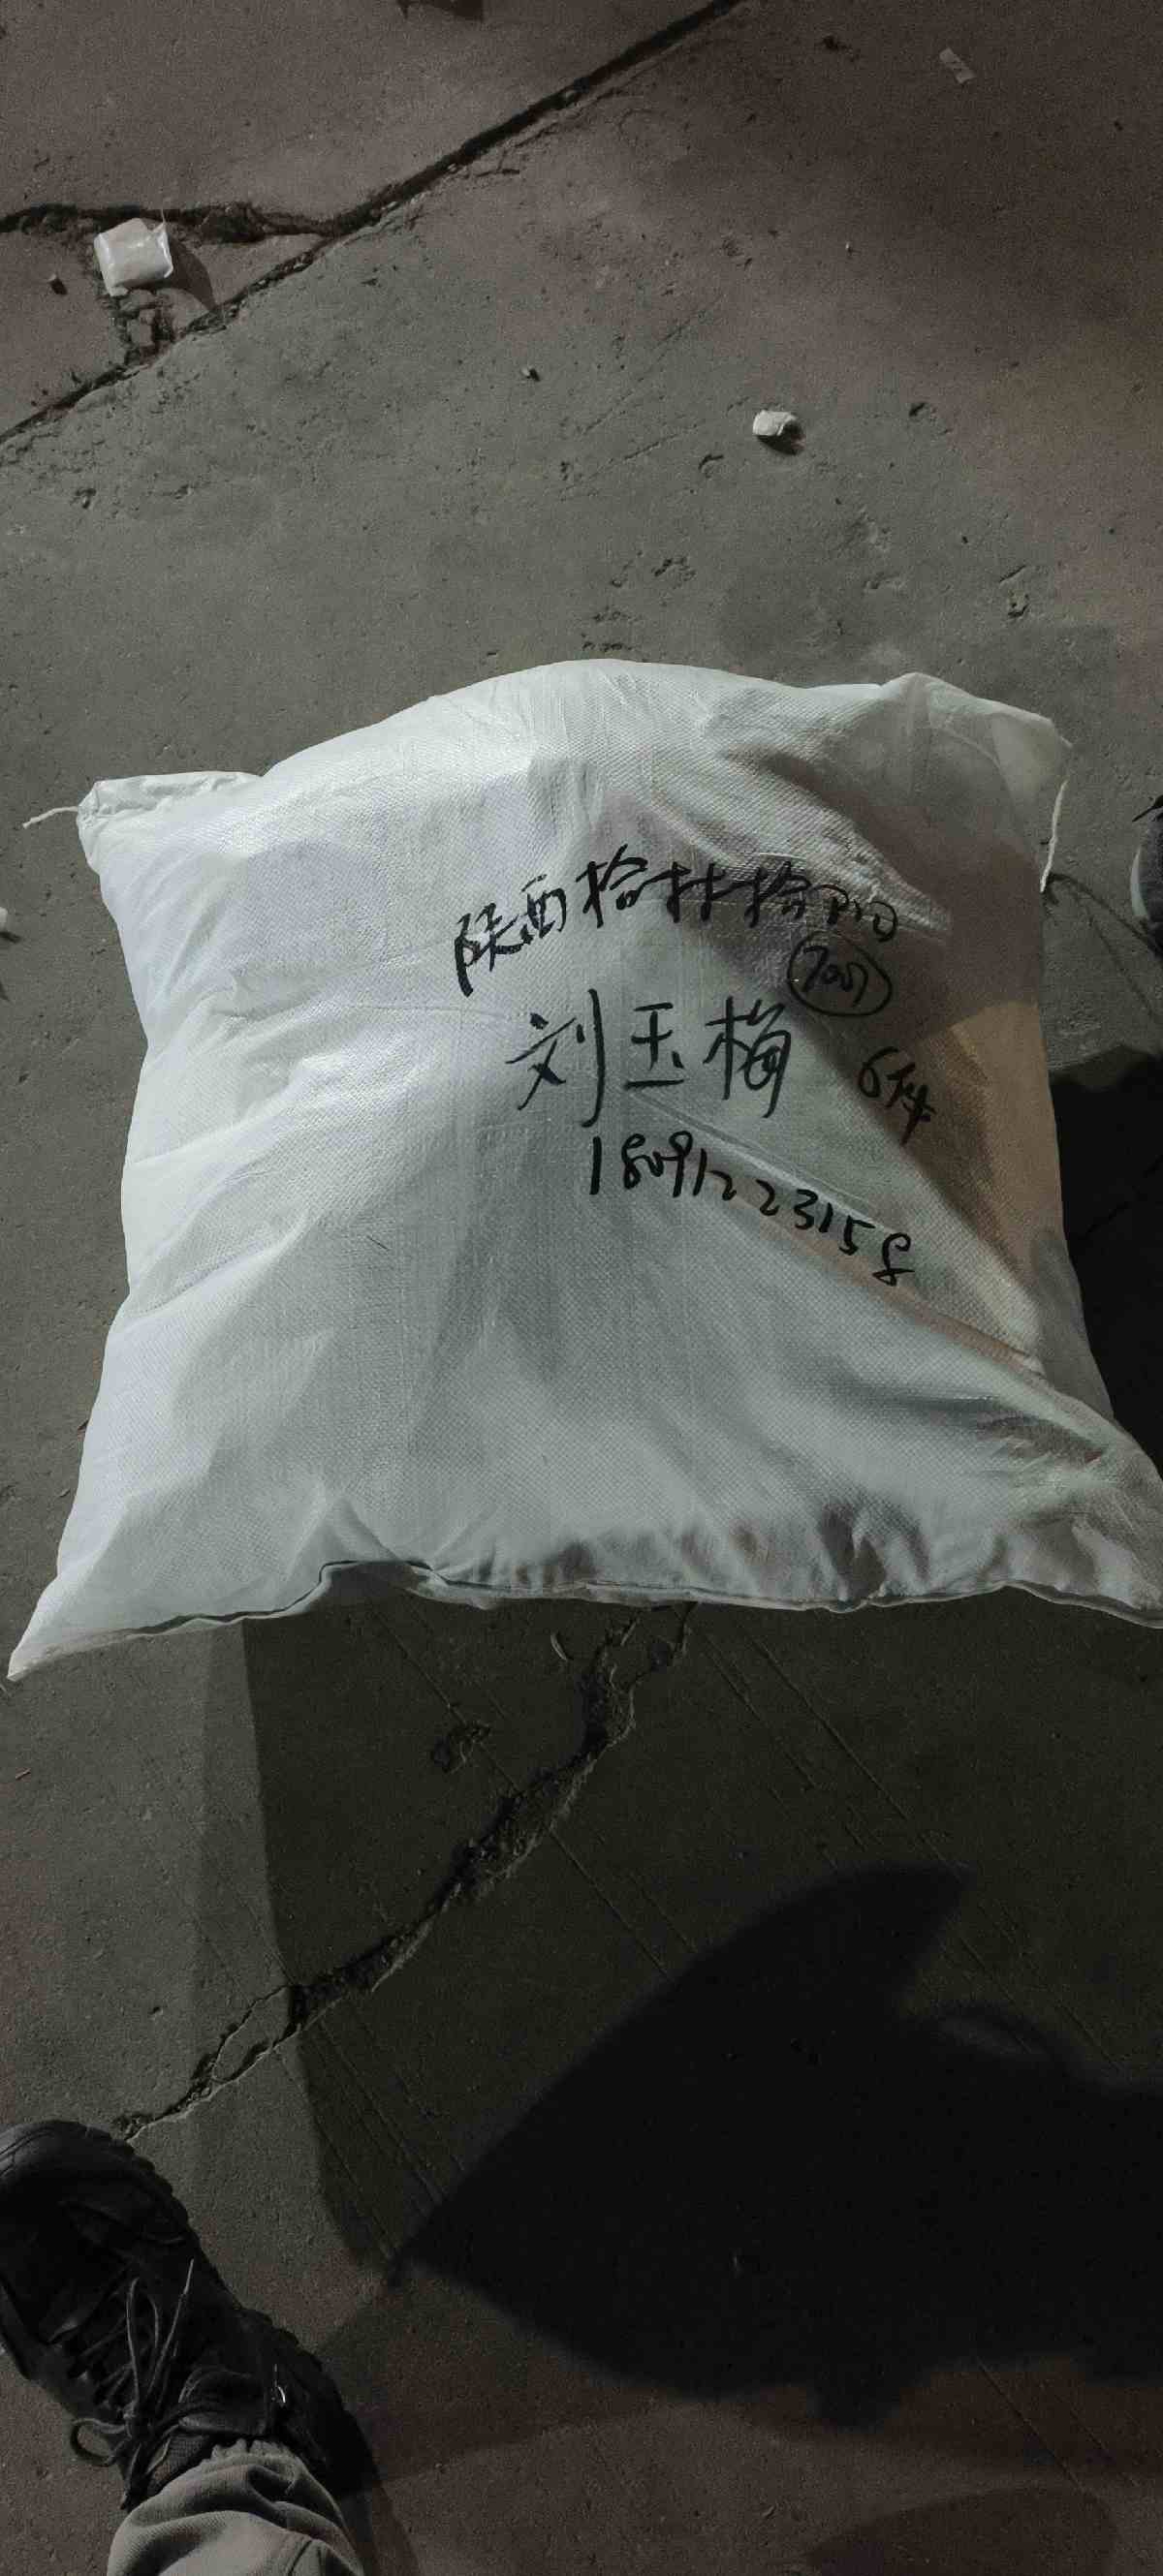 陕西榆林榆阳
刘玉梅
6件
18091223158